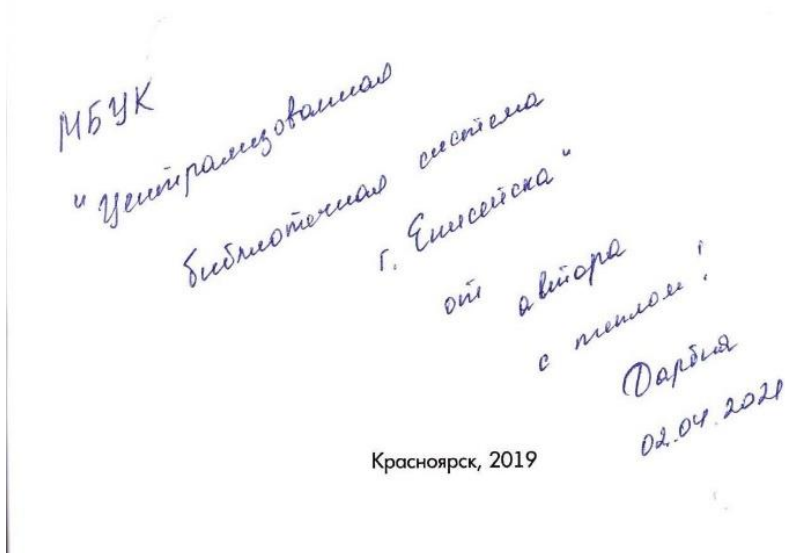 МБУК
"Централизованная
библиотечная система
г. Енисейска"
от автора
с теплом!
Дарья
02.04.2021
Красноярск, 2019